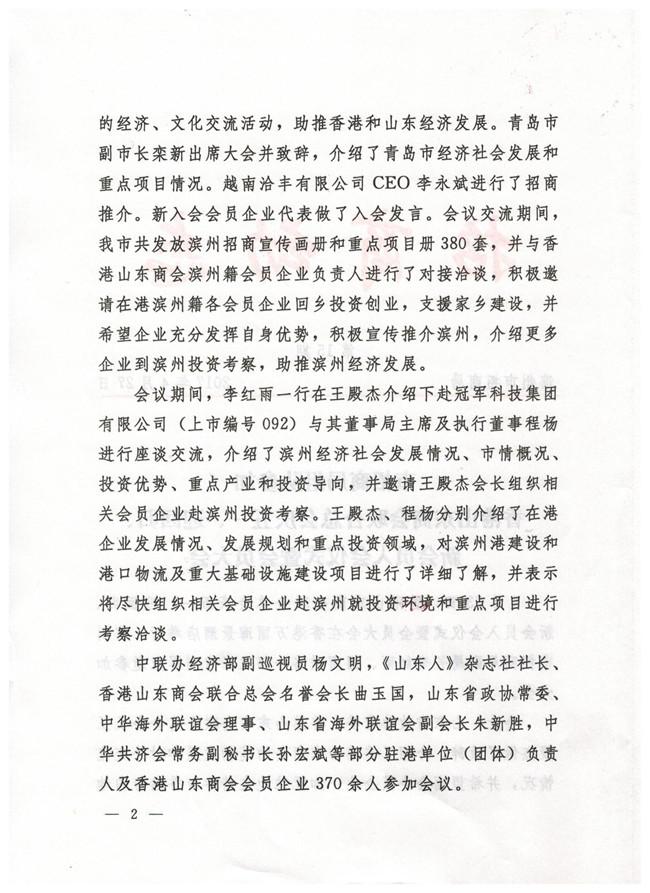 的经济、文化交流活动，助推香港和山东经济发展。青岛市
副市长栾新出席大会并致辞，介绍了青岛市经济社会发展和
重点项目情况。越南洽丰有限公司 CEO 李永斌进行了招商
推介。新入会会员企业代表做了入会发言。会议交流期间，
我市共发放滨州招商宣传画册和重点项目册 380 套，并与香
港山东商会滨州籍会员企业负责人进行了对接洽谈，积极邀
请在港滨州籍各会员企业回乡投资创业，支援家乡建设，并
希望企业充分发挥自身优势，积极宣传推介滨州，介绍更多
企业到滨州投资考察，助推滨州经济发展。
会议期间，李红雨一行在王殿杰介绍下赴冠军科技集团
有限公司（上市编号 092）与其董事局主席及执行董事程杨
进行座谈交流，介绍了滨州经济社会发展情况、市情概况、
投资优势、重点产业和投资导向，并邀请王殿杰会长组织相
关会员企业赴滨州投资考察。王殿杰、程杨分别介绍了在港
企业发展情况、发展规划和重点投资领域，对滨州港建设和
港口物流及重大基础设施建设项目进行了详细了解，并表示
将尽快组织相关会员企业赴滨州就投资环境和重点项目进行
考察洽谈。
中联办经济部副巡视员杨文明，《山东人》杂志社社长、
香港山东商会联合总会名誉会长曲玉国，山东省政协常委、
中华海外联谊会理事、山东省海外联谊会副会长朱新胜，中
华共济会常务副秘书长孙宏斌等部分驻港单位（团体）负责
人及香港山东商会会员企业 370 余人参加会议。
— 2 —